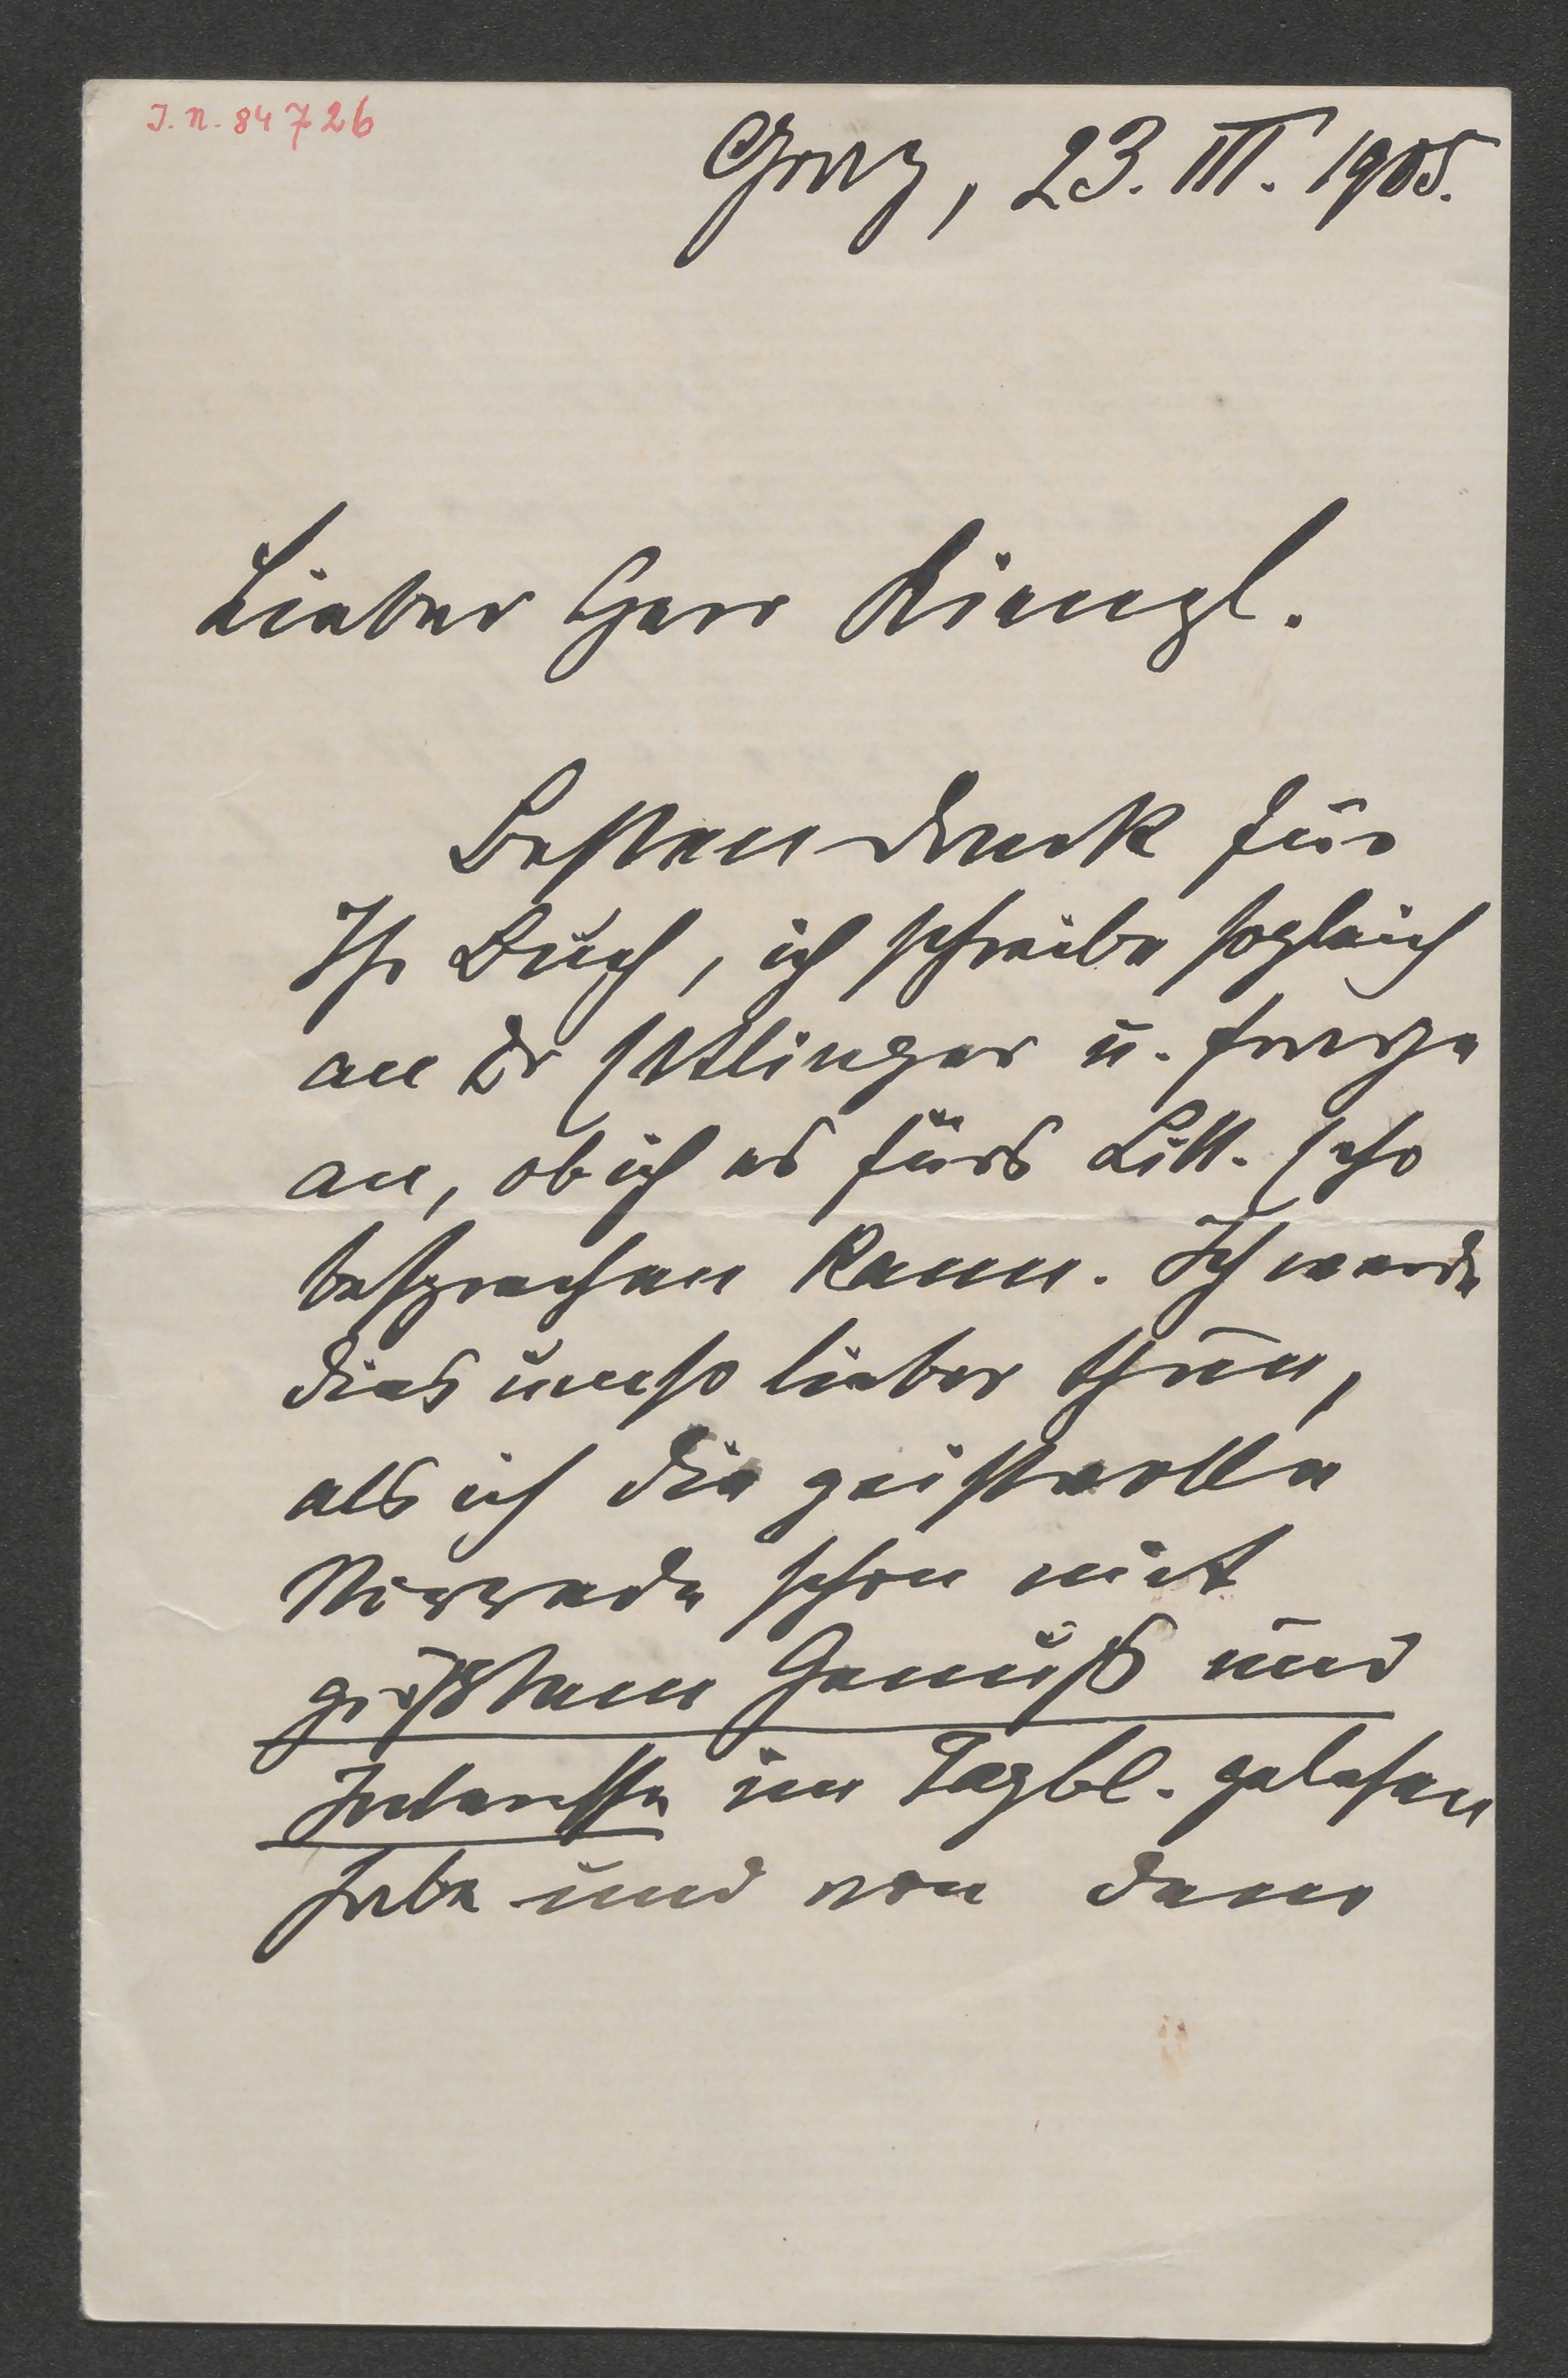 J. N. 84726
Graz, 23. III. 1905.
Lieber Herr Kienzl.
Besten Dank für
Ihr Buch, ich schreibe sogleich
an Dr Ettlinger u. frage
an, ob ich es fürs Litt. Echo
besprechen kann. Ich werde
dies umso lieber thun,
als ich die geistvolle
Vorrede schon mit
größtem Genuß und
Interesse im Tagbl. gelesen
habe und von dem